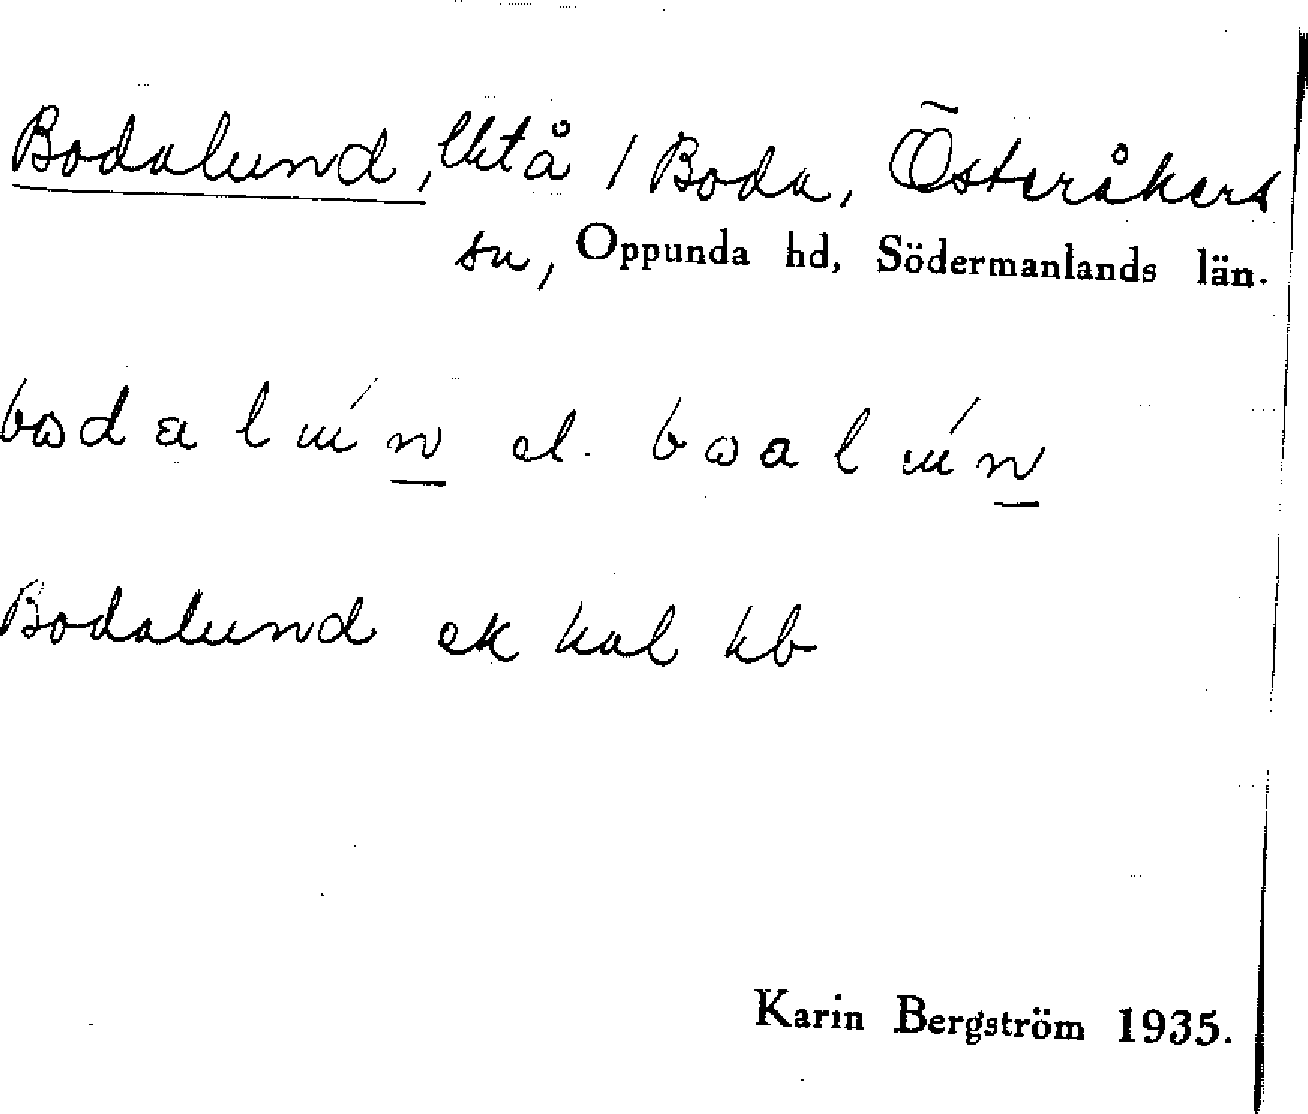 Bodalund, lhtå / Boda, Österåkers
sn, Oppunda hd, Södermanlands län.
bodalún el. boalún
Bodalund ek kal kb
Karin Bergström 1935.